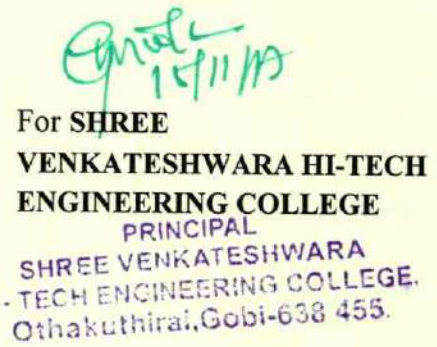 For SHREE
VENKATESHWARA HI-TECH
ENGINEERING COLLEGE
PRINCIPAL
SHREE VENKATESHWARA
- TECH ENGINEERING COLLEGE,
Othakuthirai,Gobi-638 455.